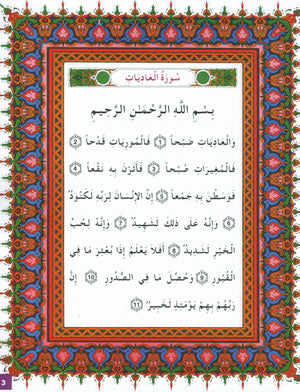 سُورَةُ الْعَادِيَاتِ
بِسْمِ اللَّهِ الرَّحْمَٰنِ الرَّحِيمِ
وَالْعَادِيَاتِ ضَبْحاً ١ فَالْمُورِيَاتِ قَدْحاً ٢
فَالْمُغِيرَاتِ صُبْحاً ٣ فَأَثَرْنَ بِهِ نَقْعاً ٤
فَوَسَطْنَ بِهِ جَمْعاً ٥ إِنَّ الْإِنْسَانَ لِرَبِّهِ لَكَنُودٌ
٦ وَإِنَّهُ عَلَى ذَلِكَ لَشَهِيدٌ ٧ وَإِنَّهُ لِحُبِّ
الْخَيْرِ لَشَدِيدٌ ٨ أَفَلَا يَعْلَمُ إِذَا بُعْثِرَ مَا فِي
الْقُبُورِ ٩ وَحُصِّلَ مَا فِي الصُّدُورِ ١٠ إِنَّ
رَبَّهُمْ بِهِمْ يَوْمَئِذٍ لَخَبِيرٌ ١١
3